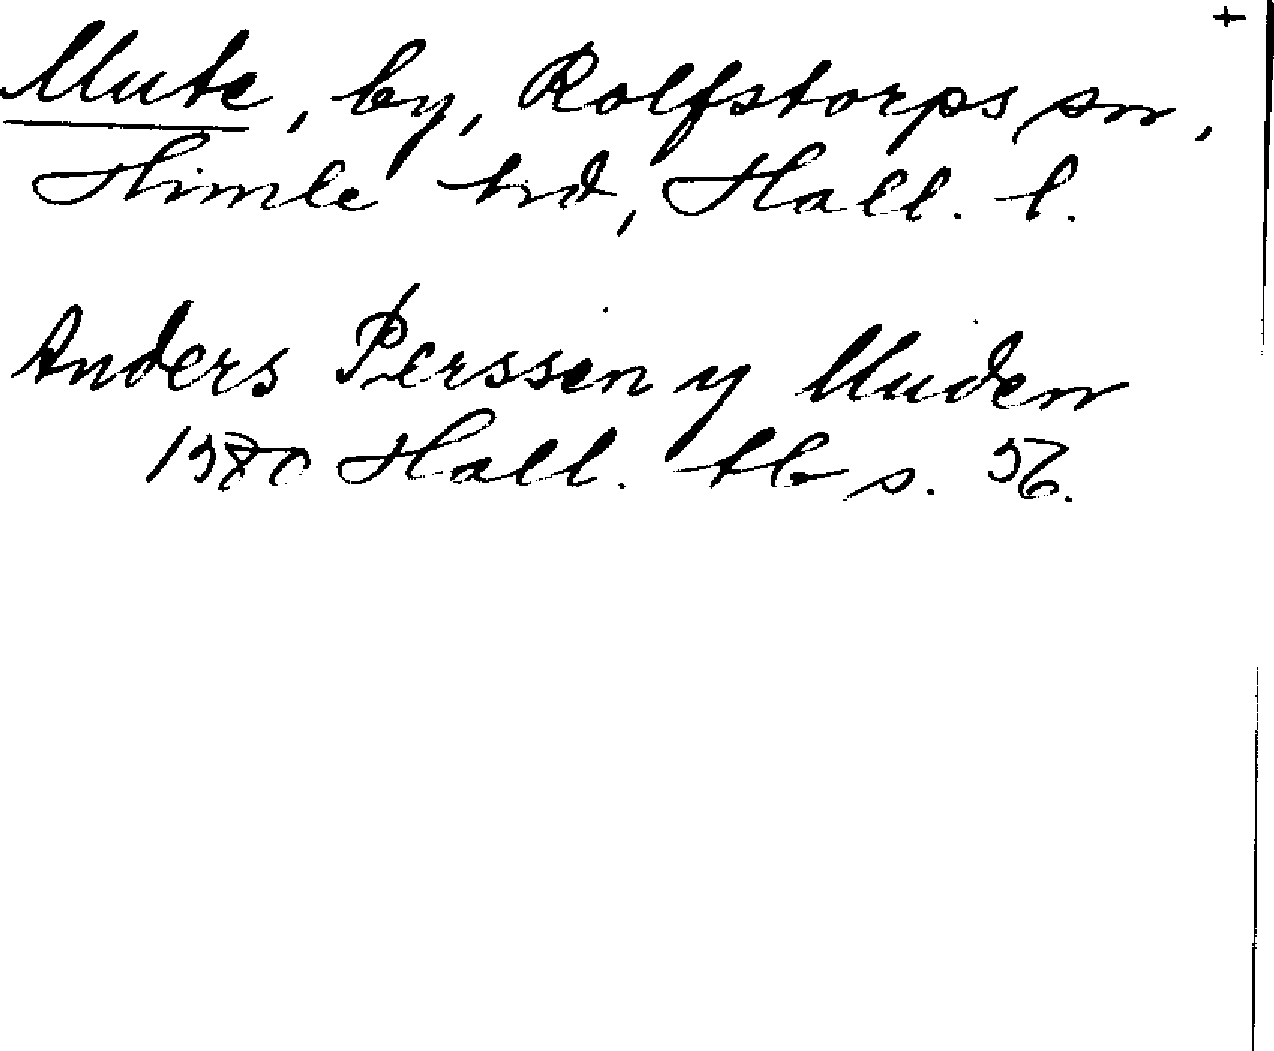 +
Mute, by, Rolfstorps sn,
Himle hd, Hall. l.
Anders Perssen y Muden
1580 Hall. tb s. 56.